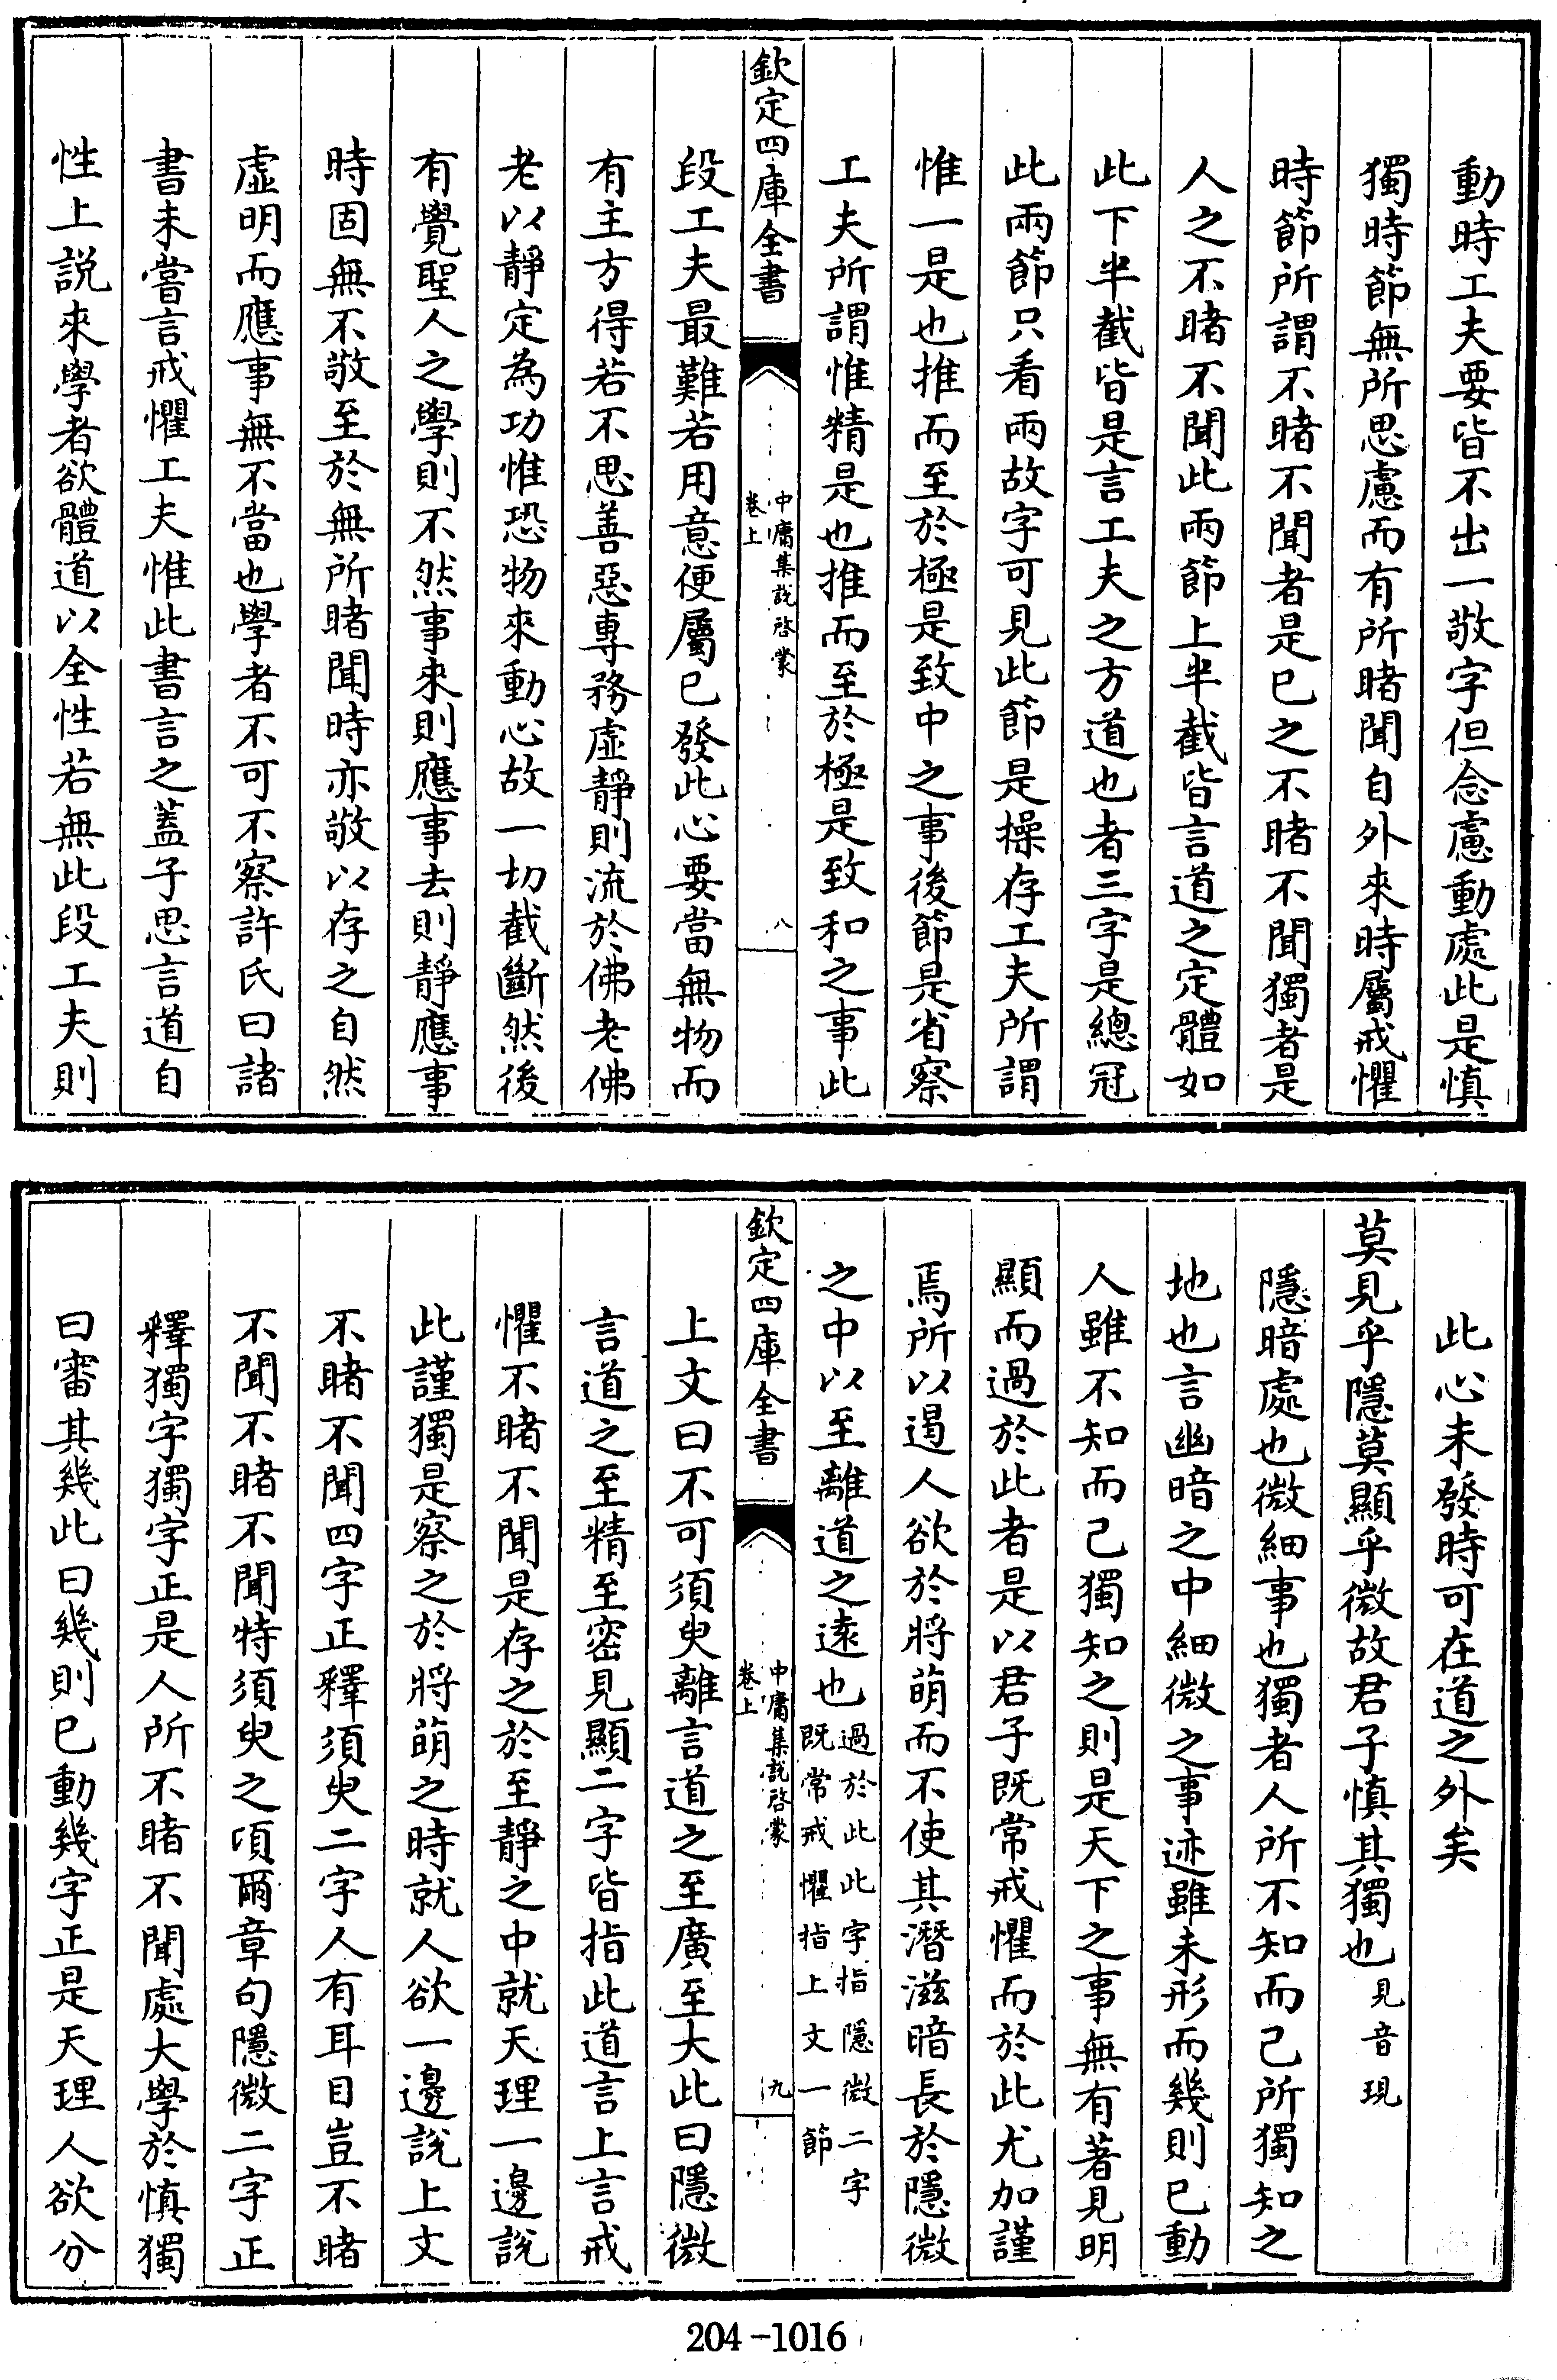 動時工夫要皆不出一敬字但念慮動處此是慎
獨時節無所思慮而有所睹聞自外來時屬戒懼
時節所謂不睹不聞者是已之不睹不聞獨者是
人之不睹不聞此兩節上半截皆言道之定體如
此下半截皆是言工夫之方道也者三字是總冠
此兩節只看兩故字可見此節是操存工夫所謂
惟一是也推而至於極是致中之事後節是省察
工夫所謂惟精是也推而至於極是致和之事此
欽定四庫全書
中庸集說啓蒙
卷上
八
段工夫最難若用意便屬已發此心要當無物而
有主方得若不思善惡專務虛靜則流於佛老佛
老以靜定為功惟恐物來動心故一切截斷然後
有覺聖人之學則不然事來則應事去則靜應事
時固無不敬至於無所睹聞時亦敬以存之自然
虛明而應事無不當也學者不可不察許氏曰諸
書未嘗言戒懼工夫惟此書言之蓋子思言道自
性上說來學者欲體道以全性若無此段工夫則
此心未發時可在道之外矣
莫見乎隱莫顯乎微故君子慎其獨也見音現
隱暗處也微細事也獨者人所不知而己所獨知之
地也言幽暗之中細微之事迹雖未形而幾則已動
人雖不知而己獨知之則是天下之事無有著見明
顯而過於此者是以君子既常戒懼而於此尤加謹
焉所以遏人欲於將萌而不使其潛滋暗長於隱微
之中以至離道之遠也過於此此字指隱微二字
既常戒懼指上文一節
欽定四庫全書
中庸集說啓蒙
卷上
九
上文曰不可須臾離言道之至廣至大此曰隱微
言道之至精至密見顯二字皆指此道言上言戒
懼不睹不聞是存之於至靜之中就天理一邊說
此謹獨是察之於將萌之時就人欲一邊說上文
不睹不聞四字正釋須臾二字人有耳目豈不睹
不聞不睹不聞特須臾之頃爾章句隱微二字正
釋獨字獨字正是人所不睹不聞處大學於慎獨
曰審其幾此曰幾則已動幾字正是天理人欲分
204-1016